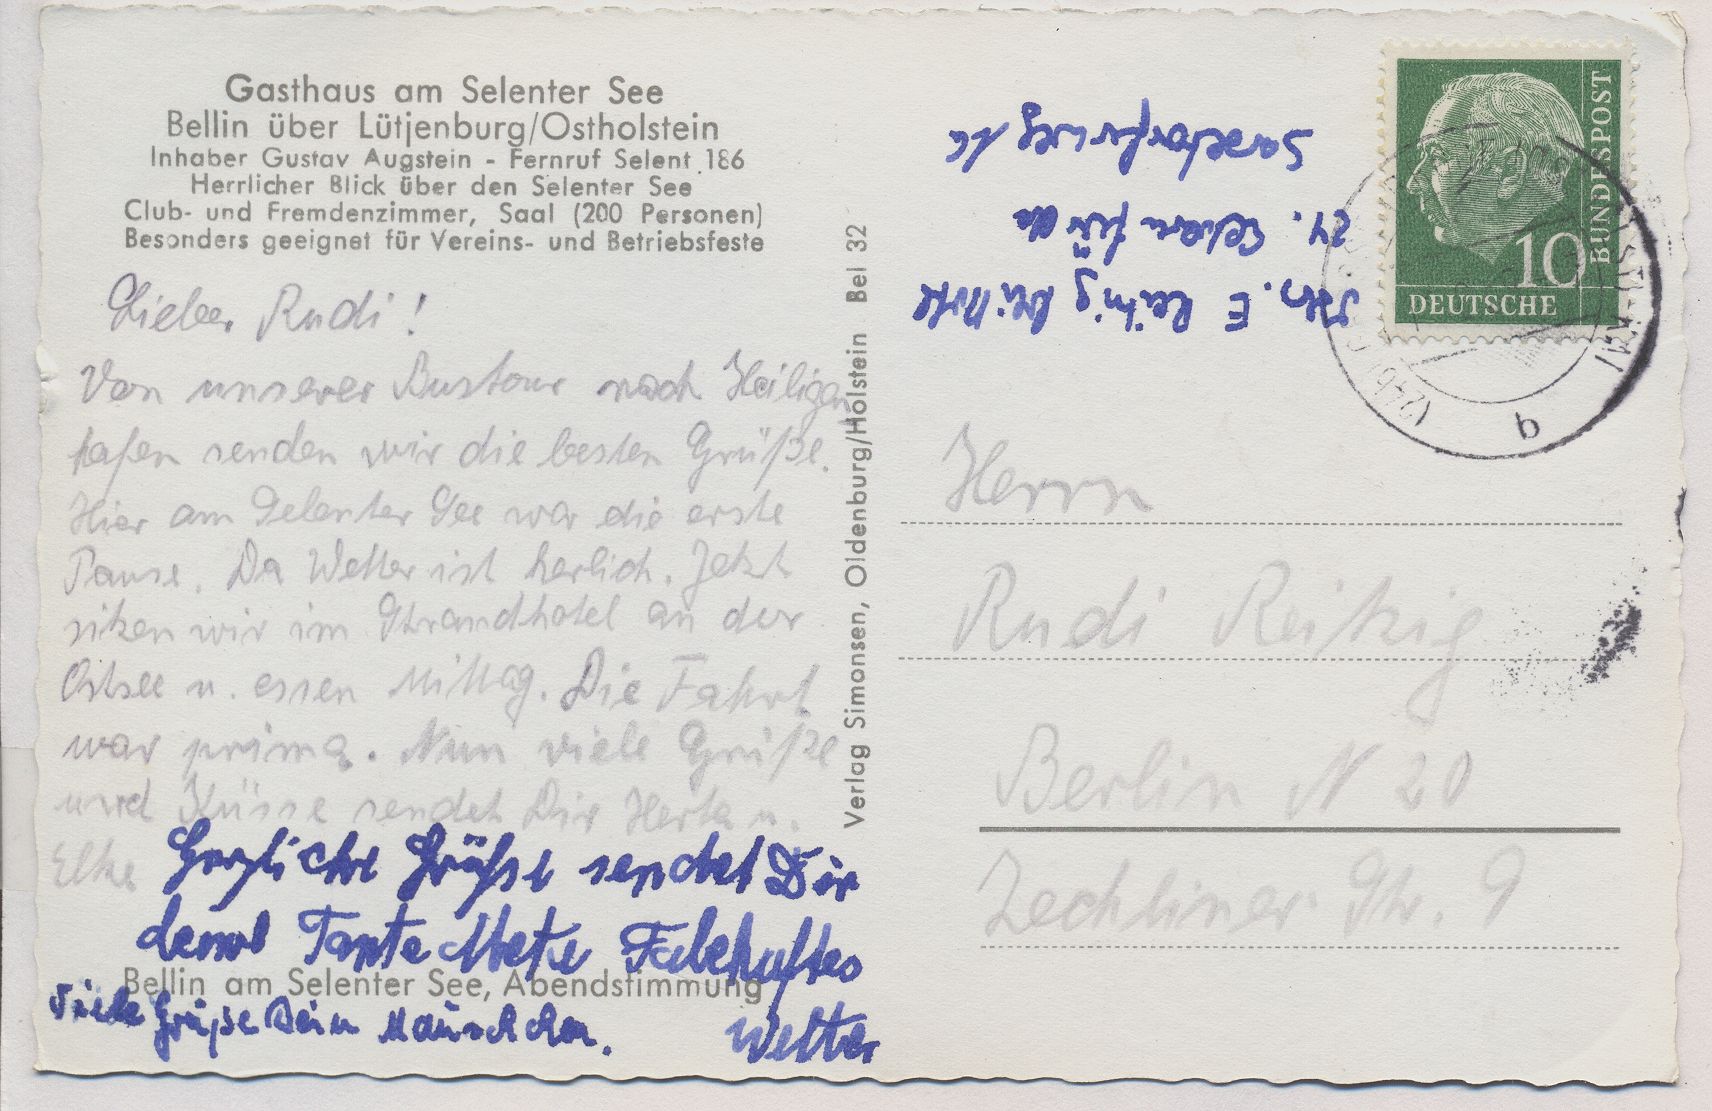 Gasthaus am Selenter See
Bellin über Lütjenburg/Ostholstein
Inhaber Gustav Augstein - Fernruf Selent 186
Herrlicher Blick über den Selenter See
Club- und Fremdenzimmer, Saal (200 Personen)
Besonders geeignet für Vereins- und Betriebsfeste
Lieber Rudi!
Von unserer Bustour nach Heiligen
hafen senden wir die besten Grüße.
Hier am Selenter See war die erste
Pause. Da Wetter ist herlich. Jetzt
sitzen wir im Strandhotel an der
Ostsee u. essen Mittag. Die Fahrt
war prima. Nun viele Grüße
und Küsse sendet Dir Herta u.
Elke
Herzliche Grüße sendet Dir
deine Tante Mete Fabelhaftes
Wetter
Viele Grüße Dein Mäuschchen.
Bellin am Selenter See, Abendstimmung
Verlag Simonsen, Oldenburg/Holstein Bel 32
DEUTSCHE
BUNDESPOST
10
(24b)
b
Herrn
Rudi Reitzig
Berlin N 20
Zechliner Str. 9